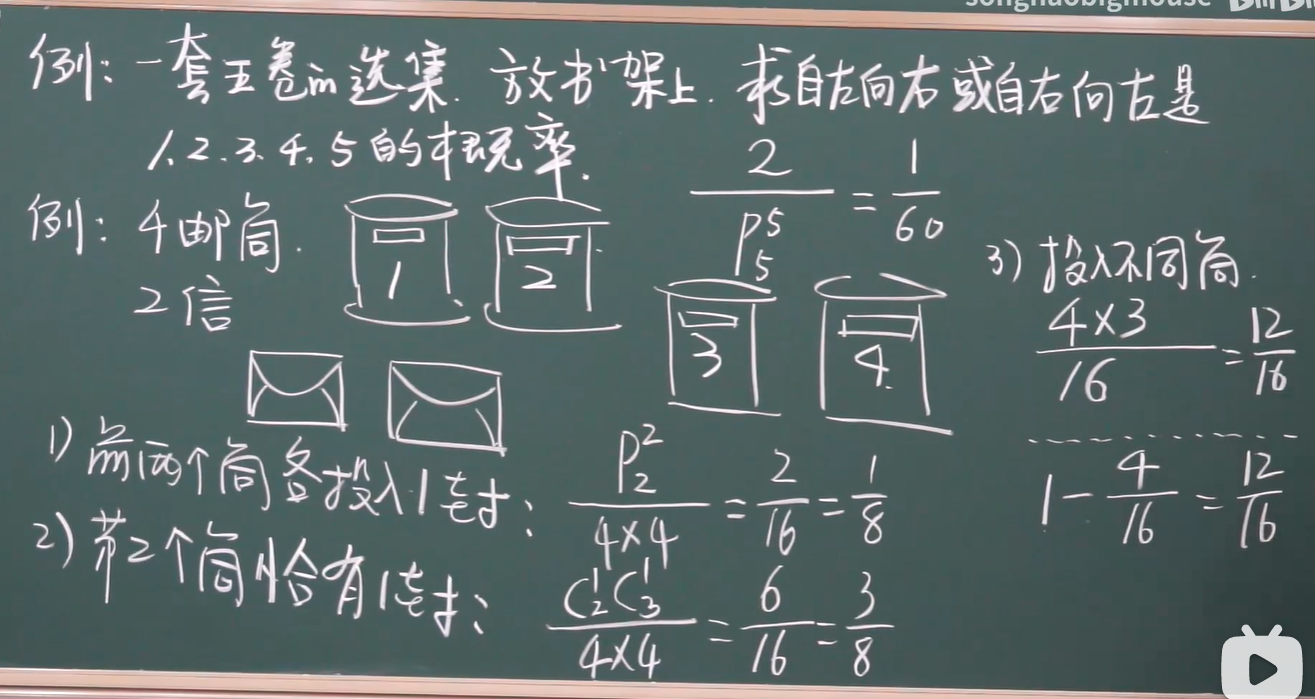 例: 一套五卷的选集. 放书架上. 求自左向右或自右向左是
1.2.3.4.5的概率.
2/P₅⁵ = 1/60
例: 4邮筒.
2信
1
2
3
4
1) 前两个筒各投入1封: P₂²/(4×4) = 2/16 = 1/8
2) 第2个筒恰有1封: C₂¹C₃¹/(4×4) = 6/16 = 3/8
3) 投入不同筒.
(4×3)/16 = 12/16
1 - 4/16 = 12/16